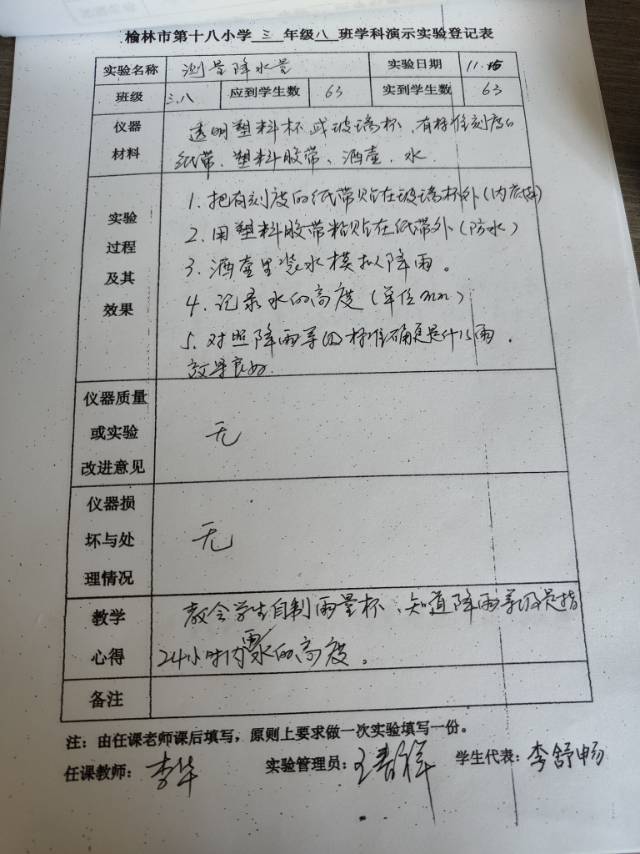 榆林市第十八小学 三 年级 八 班学科演示实验登记表
实验名称 测量降水量 实验日期 11.15
班级 三.八 应到学生数 63 实到学生数 63
仪器材料
透明塑料杯或玻璃杯、有标准刻度的
纸带、塑料胶带、洒壶、水.
实验过程及其效果
1.把有刻度的纸带贴在玻璃杯外(内底始)
2.用塑料胶带粘贴在纸带外(防水)
3.洒壶里装水模拟降雨。
4.记录水的高度(单位mm)
5.对照降雨等级标准确定是什么雨.
效果良好.
仪器质量或实验改进意见
无
仪器损坏与处理情况
无
教学心得
教会学生自制雨量杯、知道降雨等级是指
24小时内雨水的高度。
备注
注:由任课老师课后填写,原则上要求做一次实验填写一份。
任课教师:李华 实验管理员:王春祥 学生代表:李舒畅